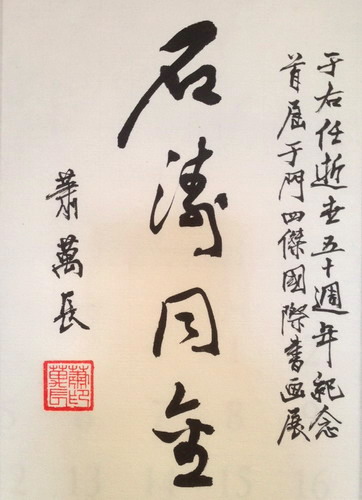 于右任逝世五十週年紀念
首屆于門四傑國際書画展
石濤同
蕭萬長
蕭印
萬長